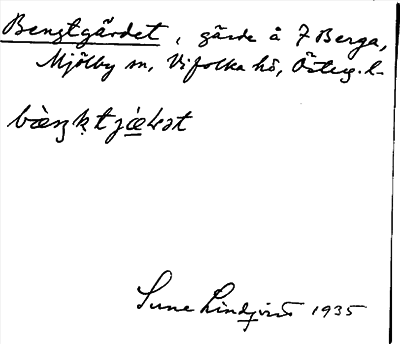 Bengtgärdet, gärde å 7 Berga,
Mjölby sn, Vifolka hd, Österg. l.
bæ̀ŋktjæ̀ɽət
Sune Lindqvist 1935